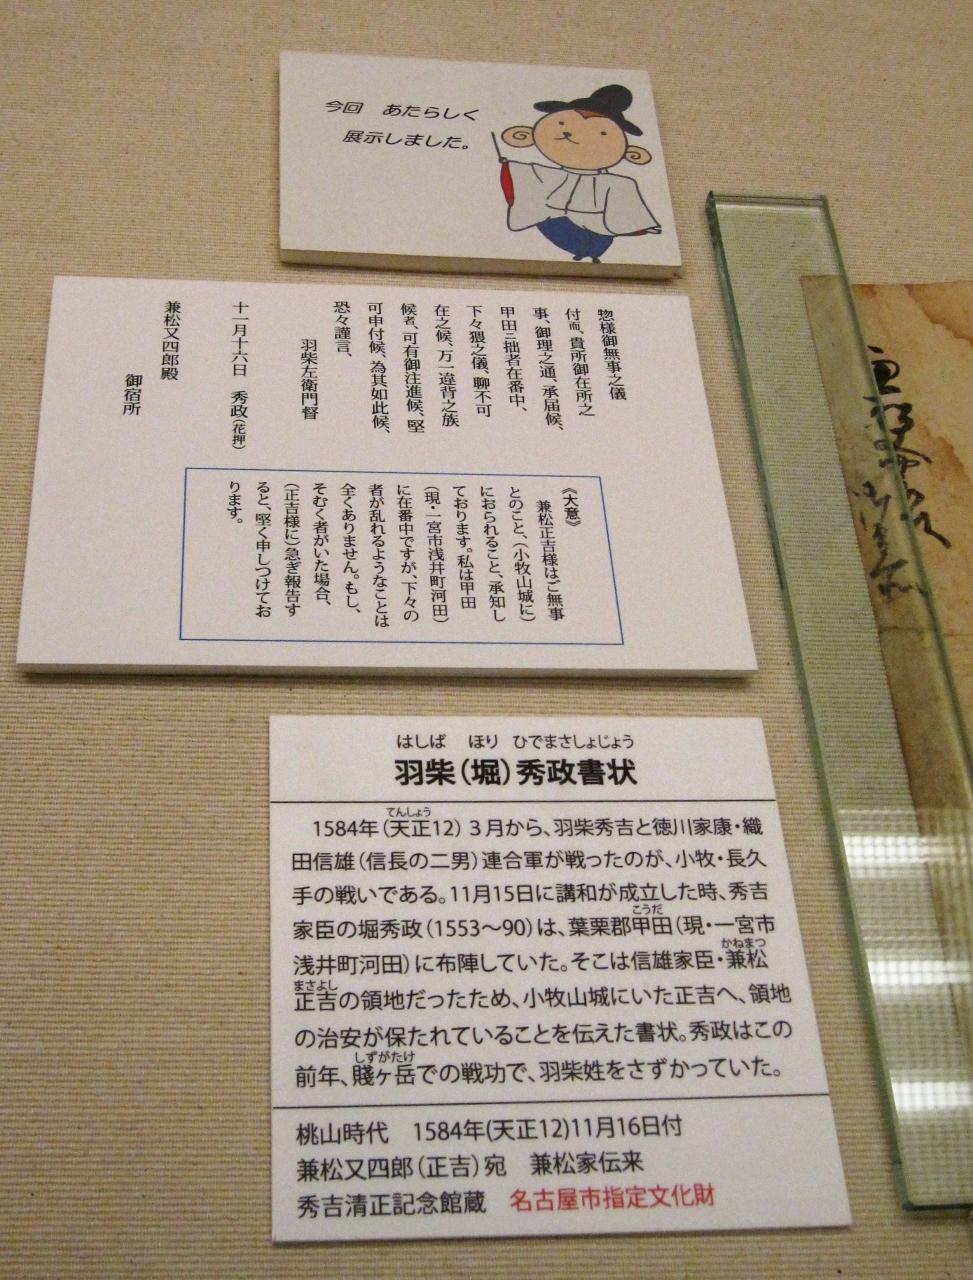 今回　あたらしく
展示しました。
惣様御無事之儀
付而、貴所御在所之
事、御理之通、承届候、
甲田ニ拙者在番中、
下々猥之儀、聊不可
在之候、万一違背之族
候者、可有御注進候、堅
可申付候、為其如此候、
恐々謹言、
羽柴左衛門督
十一月十六日　秀政（花押）
兼松又四郎殿
御宿所
《大意》
兼松正吉様はご無事
とのこと、（小牧山城に）
におられること、承知し
ております。私は甲田
（現・一宮市浅井町河田）
に在番中ですが、下々の
者が乱れるようなことは
全くありません。もし、
そむく者がいた場合、
（正吉様に）急ぎ報告す
ると、堅く申しつけてお
ります。
はしば　ほり　ひでまさしょじょう
羽柴（堀）秀政書状
てんしょう
1584年（天正12）３月から、羽柴秀吉と徳川家康・織
田信雄（信長の二男）連合軍が戦ったのが、小牧・長久
手の戦いである。11月15日に講和が成立した時、秀吉
こうだ
家臣の堀秀政（1553～90）は、葉栗郡甲田（現・一宮市
かねまつ
浅井町河田）に布陣していた。そこは信雄家臣・兼松
まさよし
正吉の領地だったため、小牧山城にいた正吉へ、領地
の治安が保たれていることを伝えた書状。秀政はこの
しずがたけ
前年、賤ヶ岳での戦功で、羽柴姓をさずかっていた。
桃山時代　1584年(天正12)11月16日付
兼松又四郎（正吉）宛　兼松家伝来
秀吉清正記念館蔵　名古屋市指定文化財